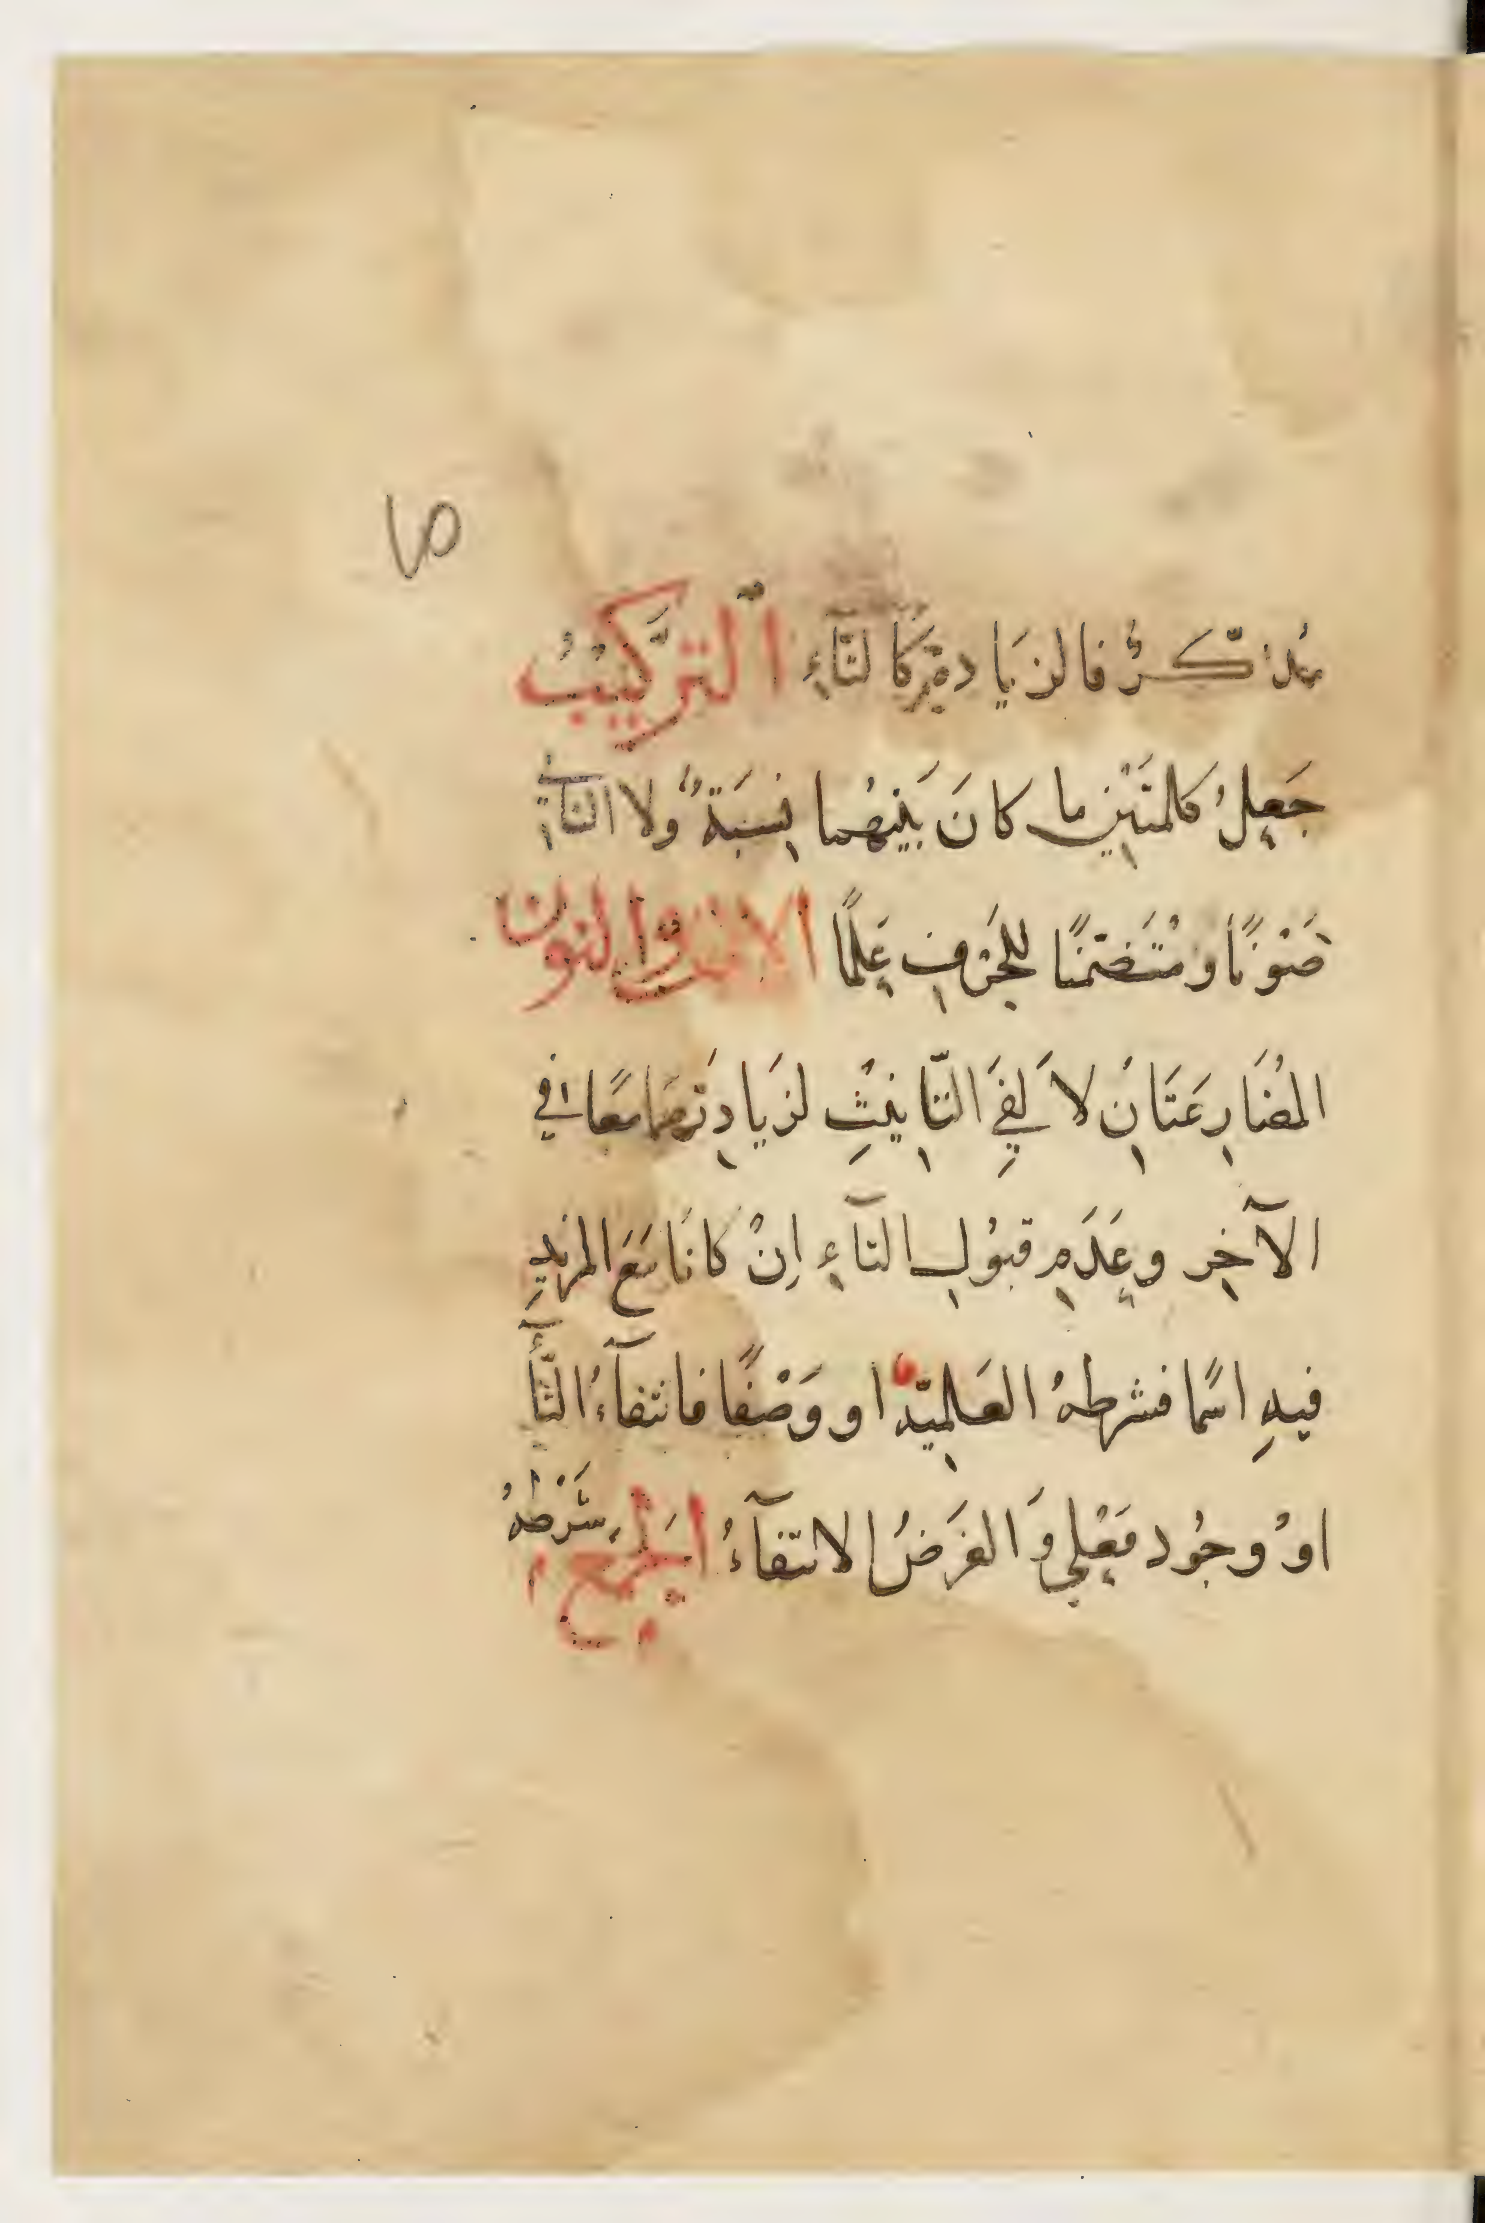 ٧٥
مذكّرٌ فالزيادةُ كالتّاءِ التركّيبُ
جَعلُ كلمتَيْنِ ما كانَ بَينهُما نِسبَةٌ ولا الثاني
صَوْتًا و مُتَضَمّنًا للحَرْفِ عَلَمًا الالف والنون
المُضَارِعَتَانِ لاَلِفَيِ التّانيثِ لزَيادِتهمَا مَعًا في
الآخِر وعَدَمِ قبوُلِ التآءِ اِنْ كانَا مَعَ المزيدِ
فيهِ اسمًا فشرطهُ العَلميّة او وَصْفًا فانتفآءُ التّآءِ
اوْ وجُود فَعْلى وَالغَرَضُ الانتفآءُ الجمع شَرْطُهُ